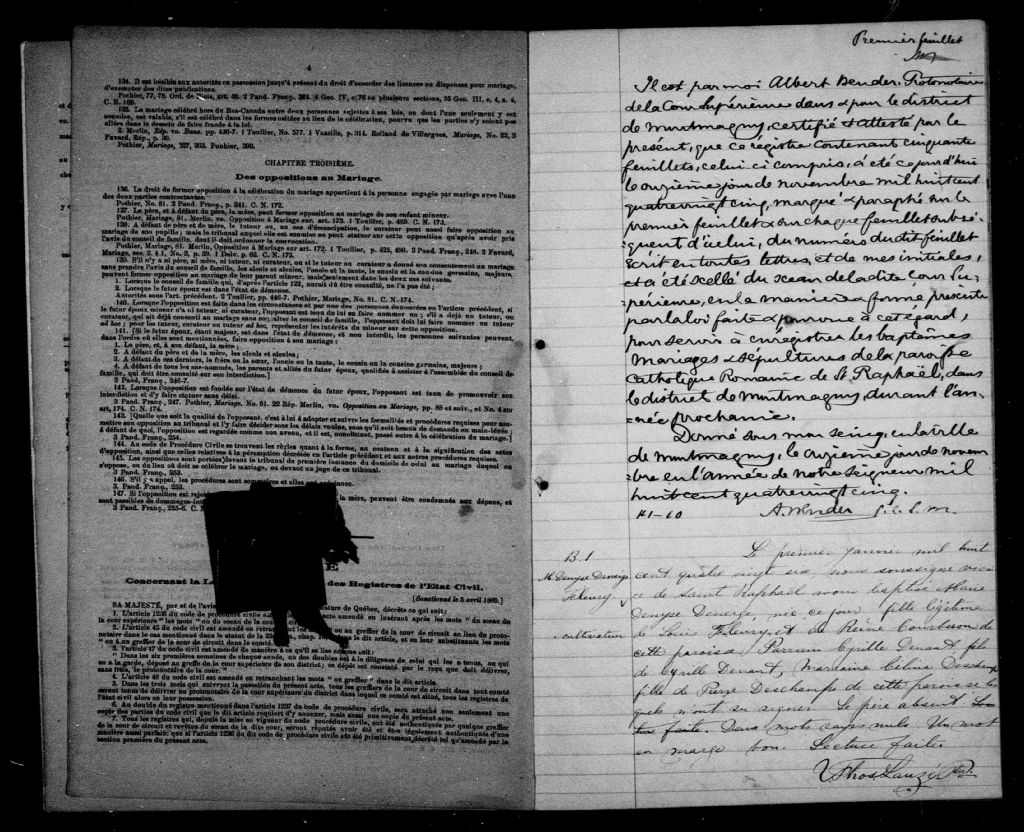 4
134. Il est loisible aux autorités en possession jusqu'à présent du droit d'accorder des licences ou dispenses pour mariage,
d'exempter des dites publications.
135. Le mariage célébré hors du Bas-Canada entre deux personnes sujettes à ses lois, ou dont l'une seulement y est
soumise, est valable, s'il est célébré dans les formes usitées au lieu de la célébration, pourvu que les parties n'y soient pas
allées dans le dessein de faire fraude à la loi.
Pothier, Mariage, 327, 363. Pouhier, 300.
CHAPITRE TROISIÈME.
Des oppositions au Mariage.
136. Le droit de former opposition à la célébration du mariage appartient à la personne engagée par mariage avec l'une
des deux parties contractantes.
Pothier, No. 81. 3 Pand. Franç., p. 241. C. N. 172.
137. Le père, et à défaut du père, la mère, peut former opposition au mariage de son enfant mineur.
Pothier, Mariage, 81. Merlin, vo. Opposition à Mariage sur. art. 173. 1 Toullier, p. 489. C. N. 173.
138. A défaut de père et de mère, le tuteur ou, au cas d'émancipation, le curateur peut aussi faire opposition au
mariage de son pupille; mais le tribunal auquel elle est soumise ne peut statuer sur cette opposition qu'après avoir pris
l'avis du conseil de famille, dont il doit ordonner la convocation.
139. S'il n'y a ni père, ni mère, ni tuteur, ni curateur, ou si le tuteur ou curateur a donné son consentement au mariage
sans prendre l'avis du conseil de famille, les aïeuls et aïeules, l'oncle et la tante, le cousin et la cousine germains, majeurs,
peuvent former opposition au mariage de leur parent mineur, mais seulement dans les deux cas suivants:
1. Lorsque le conseil de famille qui, d'après l'article 122, aurait dû être consulté, ne l'a pas été;
2. Lorsque le futur époux est dans l'état de démence.
Autorités sous l'art. précédent. 2 Toullier, pp. 446-7. Pothier, Mariage, No. 81. C. N. 174.
140. Lorsque l'opposition est faite dans les circonstances et par une des personnes énoncées en l'article précédent, si
le futur époux mineur n'a ni tuteur, ni curateur, l'opposant est tenu de lui en faire nommer un; s'il a déjà un tuteur, ou
curateur, qui ait déjà consenti au mariage sans consulter le conseil de famille, l'opposant doit lui faire nommer un tuteur
ad hoc; pour les tuteur, curateur ou tuteur ad hoc, représenter les intérêts du mineur sur cette opposition.
141. [Si le futur époux, étant majeur, est dans l'état de démence, et non interdit, les personnes suivantes peuvent,
dans l'ordre où elles sont mentionnées, faire opposition à son mariage:
1. Le père, et, à son défaut, la mère;
2. A défaut du père et de la mère, les aïeuls et aïeules;
3. A défaut de ces derniers, le frère ou la sœur, l'oncle ou la tante, le cousin ou la cousine germains, majeurs;
4. A défaut de tous les sus-nommés, les parents et alliés du futur époux, qualifiés à assister à l'assemblée du conseil de
famille, qui doit être consulté sur son interdiction.]
3 Pand. Franç., 246-7.
142. Lorsque l'opposition est fondée sur l'état de démence du futur époux, l'opposant est tenu de promouvoir son
interdiction et d'y faire statuer sans délai.
143. [Quelque que soit la qualité de l'opposant, c'est à lui à adopter et suivre les formalités et procédures requises pour sou-
mettre son opposition au tribunal et l'y faire décider sous les délais voulus, sans qu'il soit besoin de demande en main-levée;
à défaut de quoi, l'opposition est regardée comme non avenu, et il est, nonobstant, passé outre à la célébration du mariage.]
3 Pand. Franç., 254.
144. Au code de Procédure Civile se trouvent les règles quant à la forme, au contenu et à la signification des actes
d'opposition, ainsi que celles relatives à la péremption décrétée en l'article précédent et aux autres procédures requises.
145. Les oppositions sont portées devant le tribunal de première instance du domicile de celui au mariage duquel on
s'oppose, ou du lieu où doit se célébrer le mariage, ou devant un juge de ce tribunal.
3 Pand. Franç., 253.
146. S'il y a appel, les procédures sont sommaires et elles ont préséance.
3. Pand. Franç., 253.
147. Si l'opposition est rejet
la mère, peuvent être condamnés aux dépens, et
sont passibles de dommages-in
3 Pand. Franç., 255-6. C. N
E
Concernant la L
des Registres de l'Etat Civil.
[Sanctionné le 5 avril 1869.]
SA MAJESTÉ, par et de l'avis
ature de Québec, décrète ce qui suit:
1. L'article 1236 du code de procédure civile e
amendé en insérant après les mots "du sceau de
la cour supérieure" les mots "ou du sceau de la
2. L'article 45 du code civil est amendé en retran
"ou au greffier de la cour de circuit au lieu du proto-
3. L'article 47 du code civil est amendé de manière à ce qu'il se lise comme suit:
"Dans les six premières semaines de chaque année, un des doubles est à la diligence de celui qui les a tenus, ou qui
en a la garde, déposé au greffe de la cour supérieure de son district; ce dépôt est constaté par le reçu que doit délivrer,
sans frais, le protonotaire de la cour."
4. L'article 48 du code civil est amendé en retranchant les mots "ou greffier" dans le dit article.
5. Dans les trois mois qui suivront la passation du présent acte, tous les greffiers de la cour de circuit dans tout comté
seront tenus de délivrer au protonotaire de la cour supérieure du district dans lequel ce comté est situé, tous les registres de
l'état civil alors en leur possession.
6. Au double du registre mentionné dans l'article 1237 du code de procédure civile, sera attaché non seulement une
copie des parties du code civil que le dit article requiert d'y annexer, mais aussi une copie du présent acte.
section première du présent acte.
Premier feuillet
Il est par moi Albert Bender, Protonotaire
de la Cour Supérieure dans & pour le district
de Montmagny, certifié & attesté par le
présent, que ce régistre contenant cinquante
feuillets, celui-ci compris, a été ce jourd'hui
le onzième jour de novembre mil huit cent
quatrevingt cinq, marqué & paraphé sur le
premier feuillet & sur chaque feuillet subsé-
quent d'icelui, du numéro du dit feuillet
écrit en toutes lettres, et de mes initiales,
et a été scellé du sceau de la dite Cour Su-
=périeure, en la manière & forme, prescrite
par la loi faite & pourvue à cet égard,
pour servir à enrégistrer les baptêmes
mariages & sépultures de la paroisse
Catholique Romaine de St. Raphaël, dans
le district de Montmagny, durant l'an-
=née prochaine.
Donné sous mon seing, en la ville
de Montmagny, le onzième jour de novem
=bre en l'année de notre Seigneur mil
huit cent quatrevingt cinq.
A. Bender P. C. S. M.
B. 1
M. Denyse Deneige
Fleury
cultivateur
Le premier janvier mil huit
cent quatre vingt six nous soussigné vicai
re de Saint Raphaël avons baptisé Marie
Denyse Deneige, née ce jour fille légitime
de Louis Fleury, et de Reine
cette paroisse. Parrain Cyrille
de Cyrille Marraine Célina Deschamps
fille de Deschamps de cette paroisse les
quels n'ont su signer. Le père absent.
ture faite. Deux mots rayés nuls. Un mot
en marge bon. Lecture faite.